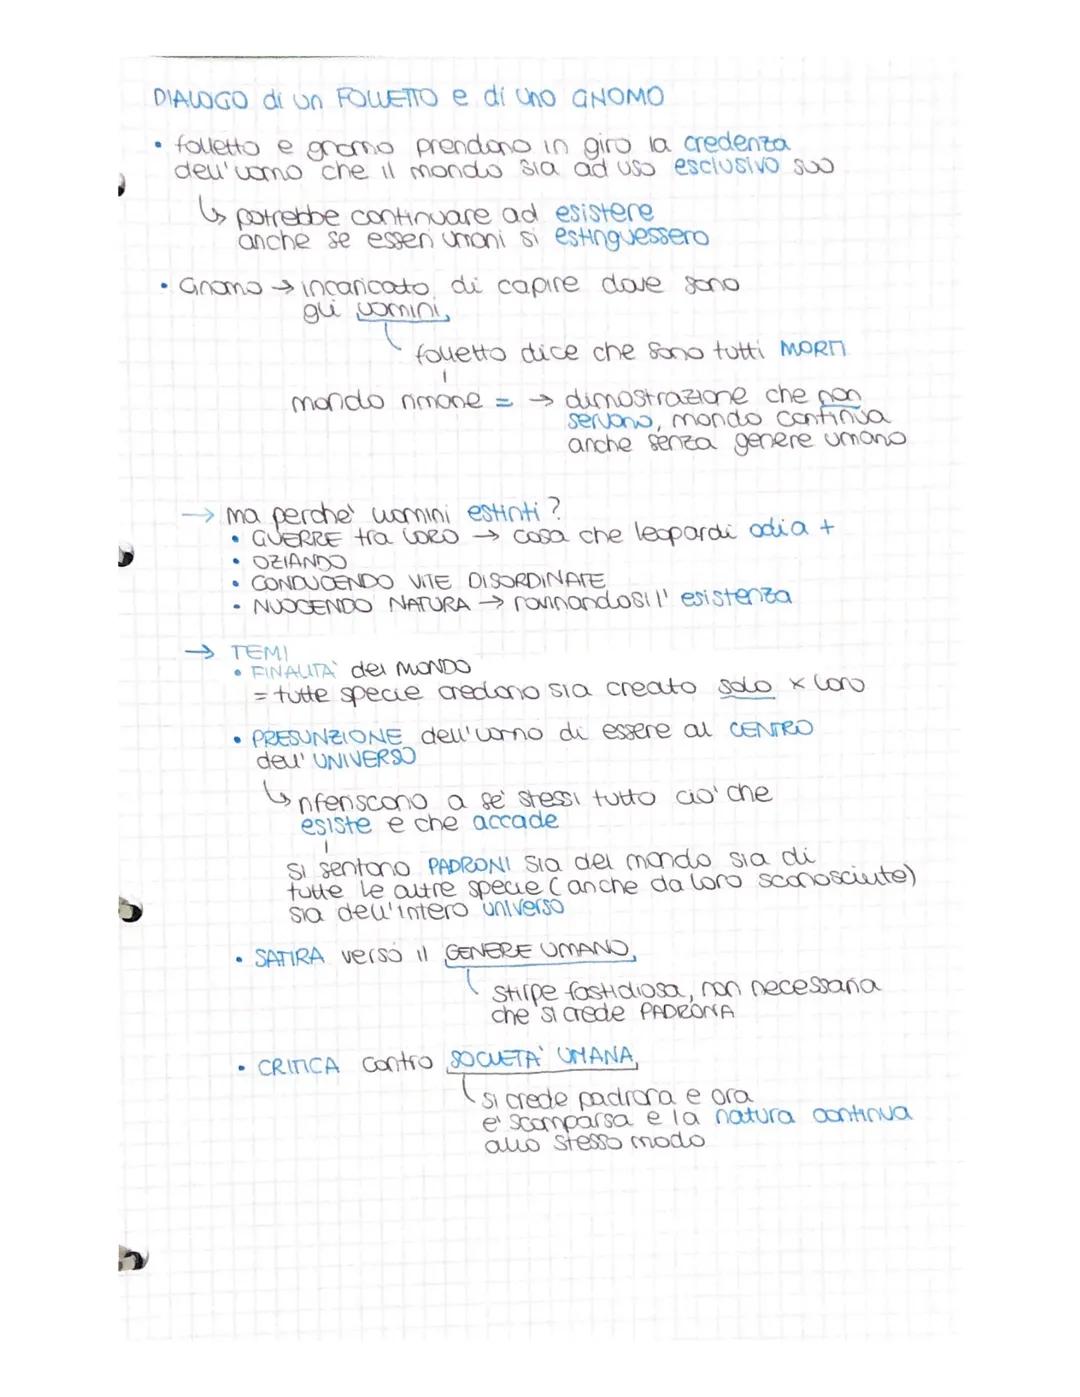 DIALOGO di un FOLLETTO e di uno GNOMO
• folletto e gnomo prendono in giro la credenza
dell'uomo che il mondo sia ad uso esclusivo suo
↳ potrebbe continuare ad esistere
anche se esseri umani si estinguessero
• Gnomo → incaricato di capire dove sono
gli uomini
folletto dice che sono tutti MORTI
mondo rimane = → dimostrazione che non
servono, mondo continua
anche senza genere umano
→ ma perche' uomini estinti?
• GUERRE tra LORO → cosa che leopardi odia +
• OZIANDO
• CONDUCENDO VITE DISORDINATE
• NUOCENDO NATURA → rovinandosi l'esistenza
→ TEMI
• FINALITA' del MONDO
= tutte specie credono sia creato solo x loro
• PRESUNZIONE dell'uomo di essere al CENTRO
dell'UNIVERSO
↳ riferiscono a se' stessi tutto cio' che
esiste e che accade
si sentono PADRONI sia del mondo sia di
tutte le altre specie (anche da loro sconosciute)
sia dell'intero universo
• SATIRA verso il GENERE UMANO
stirpe fastidiosa, non necessaria
che si crede PADRONA
• CRITICA contro SOCIETA' UMANA
si crede padrona e ora
e' scomparsa e la natura continua
allo stesso modo